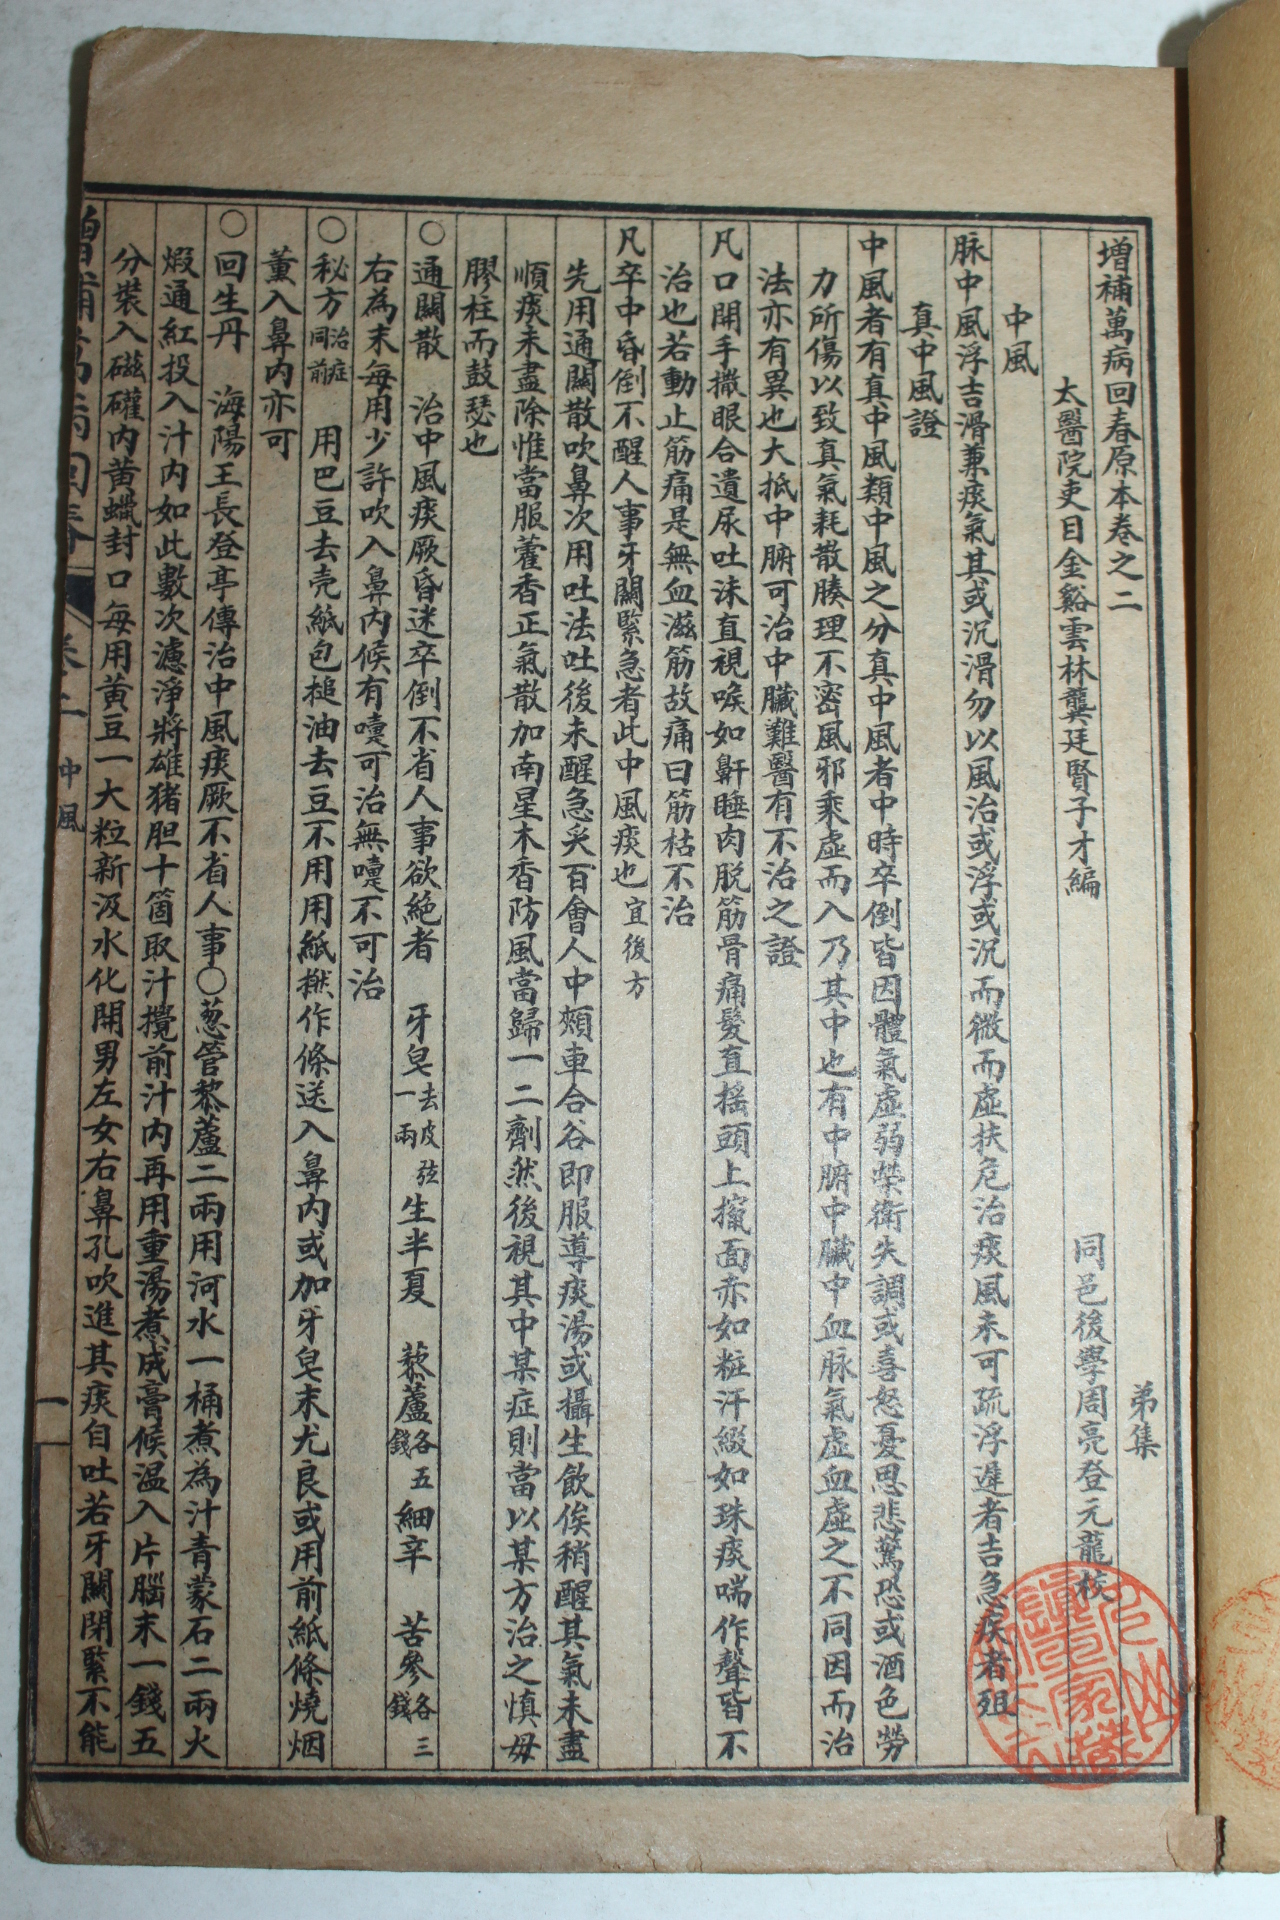 增補萬病回春原本卷之二
弟集
太醫院吏目金谿雲林龔廷賢子才編
同邑後學周亮登元龍校
中風
脉中風浮吉滑兼痰氣其或沉滑勿以風治或浮或沉而微而虛扶危治痰風未可疏浮遲者吉急疾者殂
真中風證
中風者有真中風類中風之分真中風者中時卒倒皆因體氣虛弱榮衛失調或喜怒憂思悲驚恐或酒色勞
力所傷以致真氣耗散腠理不密風邪乘虛而入乃其中也有中腑中臟中血脉氣虛血虛之不同因而治
法亦有異也大抵中腑可治中臟難醫有不治之證
凡口開手撒眼合遺尿吐沫直視喉如鼾睡肉脫筋骨痛髮直搖頭上攛面赤如粧汗綴如珠痰喘作聲皆不
治也若動止筋痛是無血滋筋故痛曰筋枯不治
凡卒中昏倒不醒人事牙關緊急者此中風痰也宜後方
先用通關散吹鼻次用吐法吐後未醒急灸百會人中頰車合谷即服導痰湯或攝生飲俟稍醒其氣未盡
順痰未盡除惟當服藿香正氣散加南星木香防風當歸一二劑然後視其中某症則當以某方治之慎毋
膠柱而鼓瑟也
○通關散 治中風痰厥昏迷卒倒不省人事欲絕者 牙皂去皮弦一兩 生半夏 藜蘆各五錢 細辛 苦參各三錢
右為末每用少許吹入鼻內候有嚏可治無嚏不可治
○秘方治症同前 用巴豆去壳紙包搥油去豆不用用紙撚作條送入鼻內或加牙皂末尤良或用前紙條燒烟
薰入鼻內亦可
○回生丹 海陽王長登亭傳治中風痰厥不省人事○葱管藜蘆二兩用河水一桶煮為汁青蒙石二兩火
煅通紅投入汁內如此數次濾淨將雄猪胆十箇取汁攪前汁內再用重湯煮成膏候温入片腦末一錢五
分裝入磁礶內黄蠟封口每用黃豆一大粒新汲水化開男左女右鼻孔吹進其痰自吐若牙關閉緊不能
卷二 中風
一